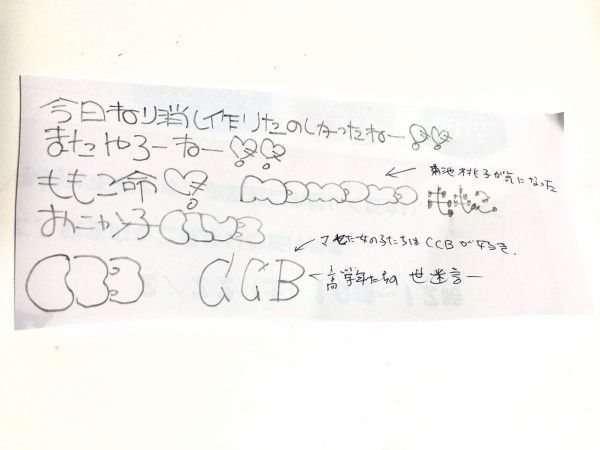 今日ねり消し作りたのしかったねー
またやろーねー
ももこ命 MOMOKO ももこ
←菊池桃子が気になった
おんニャン子CLUB
CCB CCB
←マセた女の子たちはCCBが好き.
←高学年たちの世迷言ー